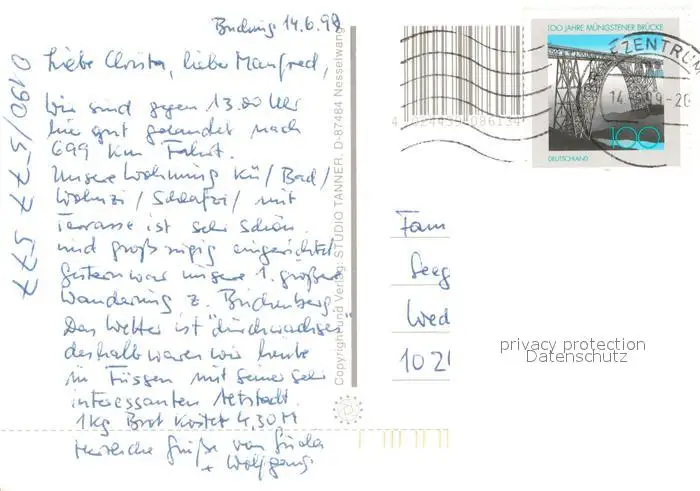 Buching 14.6.99
Liebe Christa, lieber Manfred,
Wir sind gegen 13.00 Uhr
hier gut gelandet nach
699 km Fahrt.
Unsere Wohnung Kü/Bad/
Wohnzi/Schlafzi/ mit
Terrasse ist sehr schön
und großzügig eingerichtet
Gestern war unsere 1. größere
Wanderung z. Buchenberg.
Das Wetter ist "durchwachsen"
deshalb waren wir heute
in Füssen mit seiner sehr
interessanten Altstadt.
1 Kg Brot kostet 4,30 M
Herzliche Grüße von
+ Wolfgang
0190/577 577
Copyright und Verlag: STUDIO TANNER, D-87484 Nesselwang
4 024439 086134
100 JAHRE MÜNGSTENER BRÜCKE
100
DEUTSCHLAND
EZENTRUM
Fam
Seeg
Wed
102
privacy protection
Datenschutz